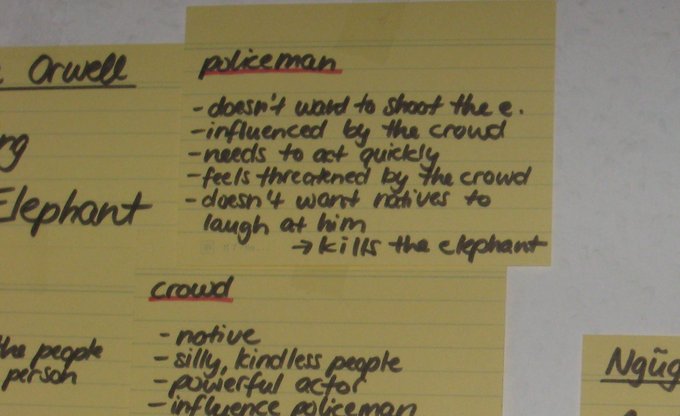 Orwell
Elephant
he people
person
policeman
- doesn't want to shoot the e.
- influenced by the crowd
- needs to act quickly
- feels threatened by the crowd
- doesn't want natives to
laugh at him
→ kills the elephant
crowd
- native
- silly, kindless people
- powerful actor
- influence policeman
Ngũg